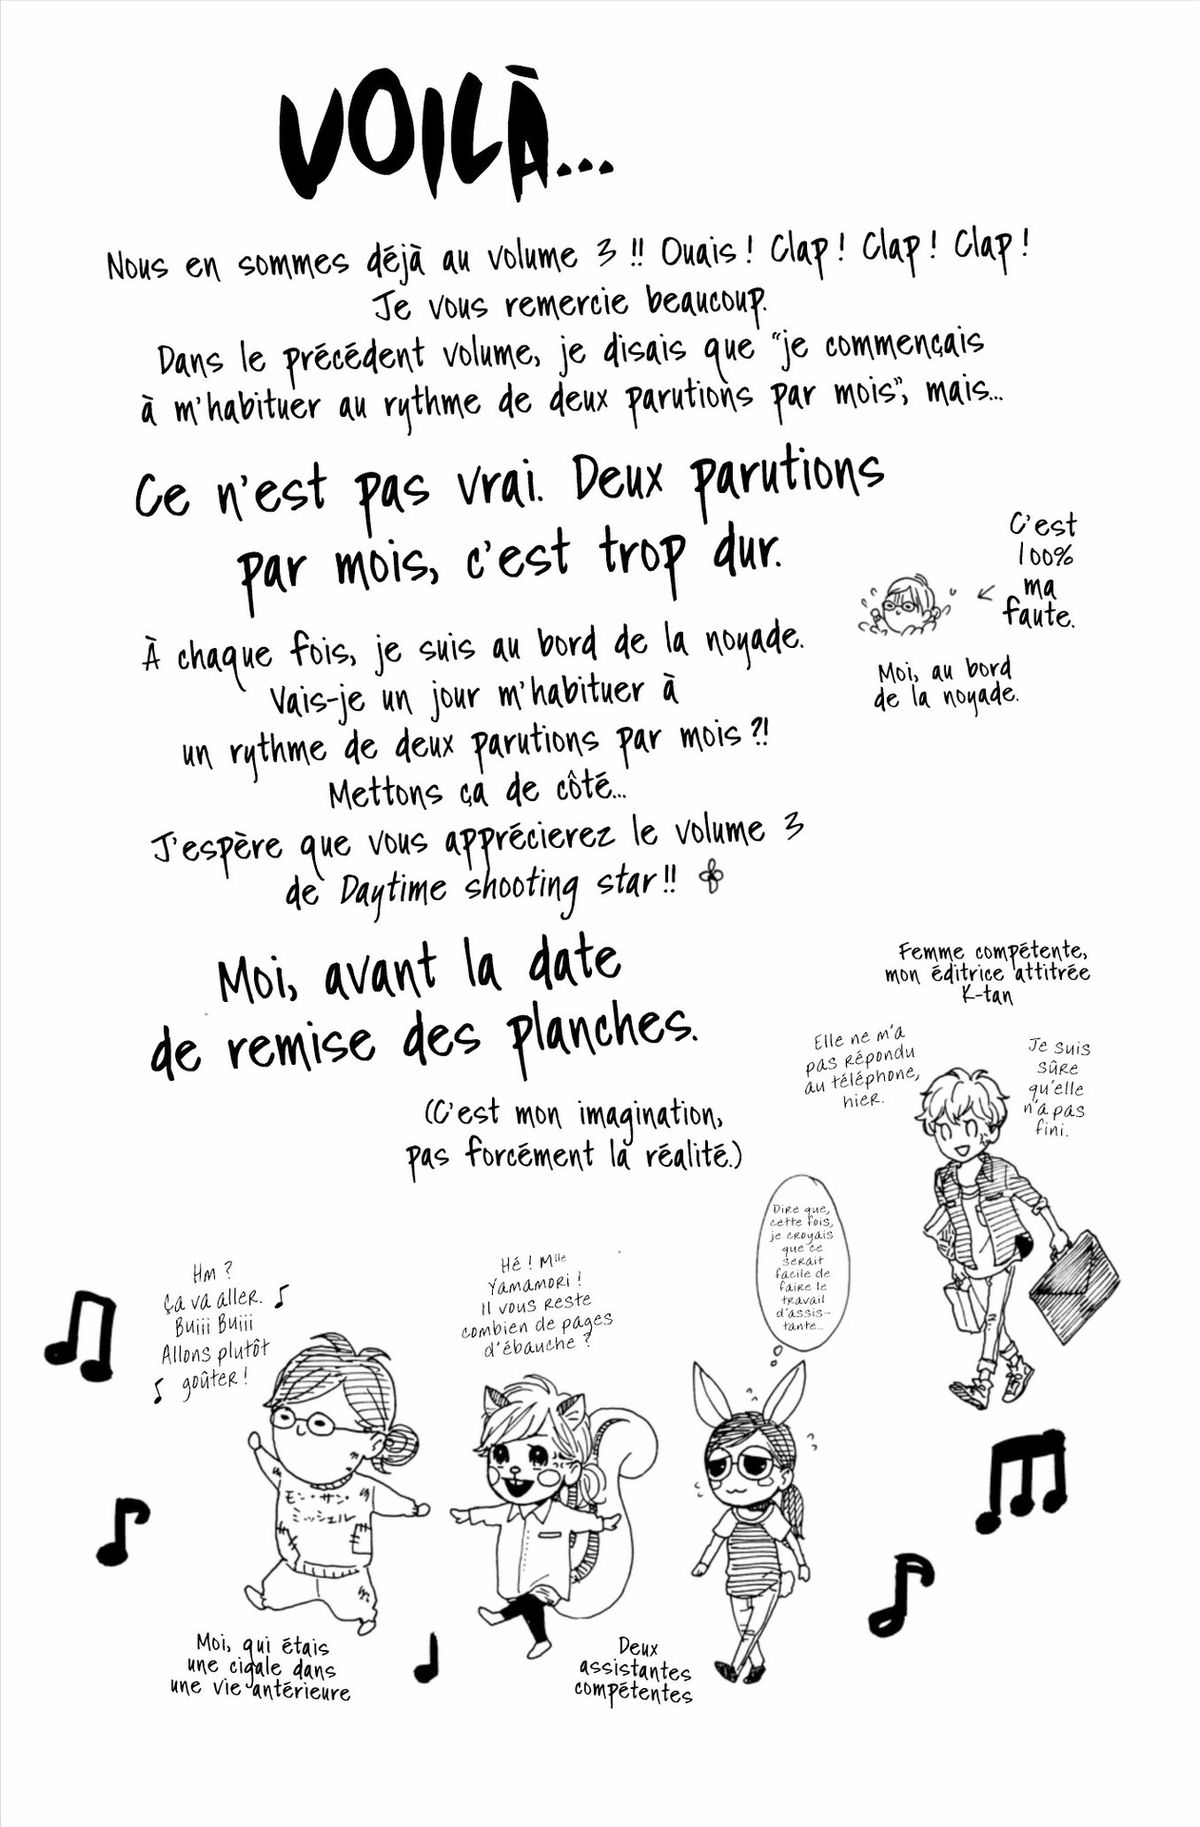 VOILÀ...
Nous en sommes déjà au volume 3 !! Ouais ! Clap ! Clap ! Clap !
Je vous remercie beaucoup.
Dans le précédent volume, je disais que “je commençais
à m'habituer au rythme de deux parutions par mois”, mais...
Ce n'est pas vrai. Deux parutions
par mois, c'est trop dur.
C'est
100%
ma
faute.
Moi, au bord
de la noyade.
À chaque fois, je suis au bord de la noyade.
Vais-je un jour m'habituer à
un rythme de deux parutions par mois ?!
Mettons ça de côté...
J'espère que vous apprécierez le volume 3
de Daytime shooting star !!
Moi, avant la date
de remise des planches.
(C'est mon imagination,
pas forcément la réalité.)
Femme compétente,
mon éditrice attitrée
K-tan
Elle ne m'a
pas répondu
au téléphone,
hier.
Je suis
sûre
qu'elle
n'a pas
fini.
Dire que,
cette fois,
je croyais
que ce
serait
facile de
faire le
travail
d'assis-
tante...
Hé ! Mlle
Yamamori !
Il vous reste
combien de pages
d'ébauche ?
Hm ?
Ça va aller. ♪
Buiii Buiii
Allons plutôt
♪ goûter !
モン・サン・
ミッシェル
Moi, qui étais
une cigale dans
une vie antérieure
Deux
assistantes
compétentes